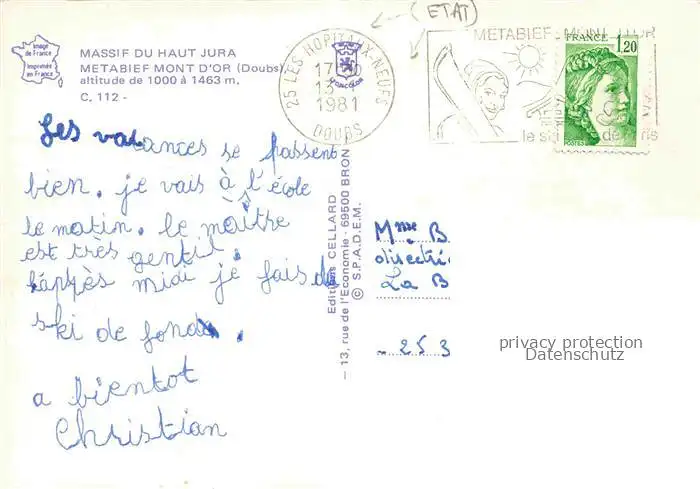 (ETAT)
Image de France
Imprimée en France
MASSIF DU HAUT JURA
METABIEF MONT D'OR (Doubs)
altitude de 1000 à 1463 m.
C. 112 -
25 LES HOPITAUX-NEUFS
17
13
1981
DOUBS
METABIEF MONT D'OR
le ski
FRANCE 1,20
POSTES
Les vacances se passent
bien. je vais à l'école
le matin. le maître
est très gentil.
l'après midi je fais du
ski de fond.
a bientot
Christian
Editions CELLARD
— 13, rue de l'Economie - 69500 BRON
© S.P.A.D.E.M.
Mme B
directri
La B
253
privacy protection
Datenschutz